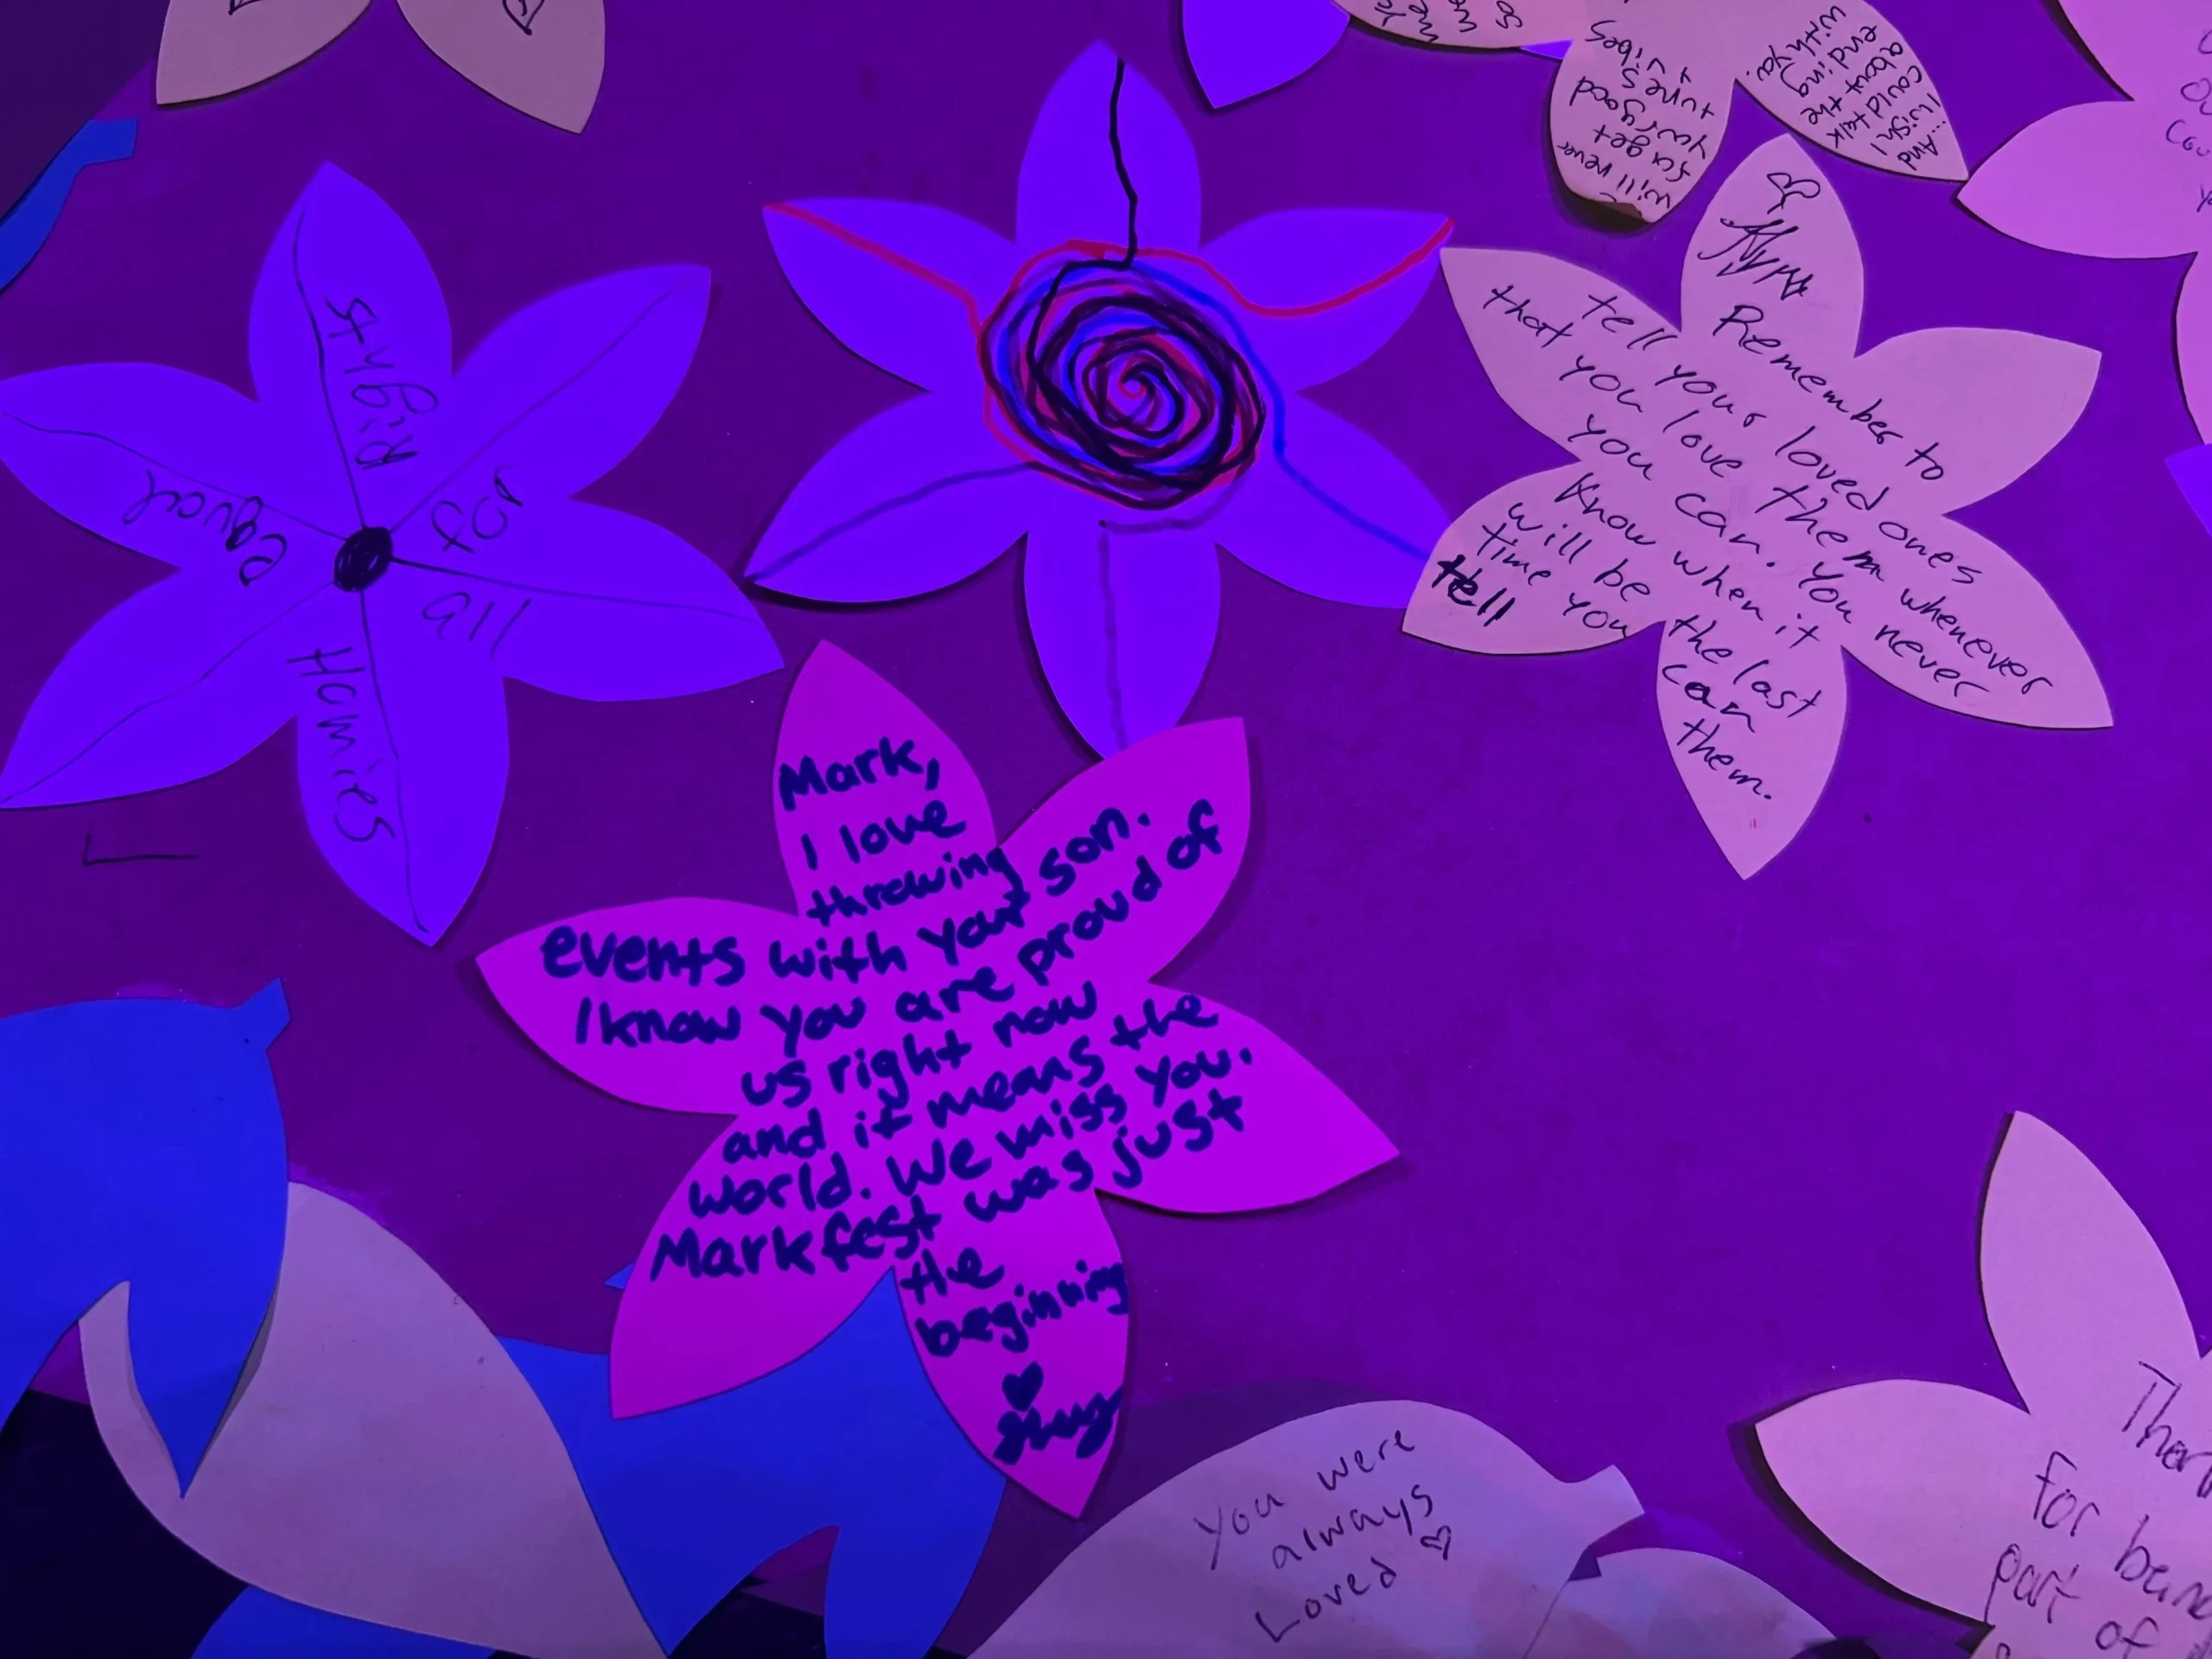 will never
forget
your good
tune's
& vibes
...And
I wish I
could talk
about the
ending
with ya.
equal
Rights
for
all
Homies
Remember to
tell your loved ones
that you love them whenever
you can. You never
know when it
will be the last
time you can
tell them.
Mark,
I love
throwing
events with your son.
I know you are proud of
us right now
and it means the
world. We miss you.
Markfest was just
the
beginning
♥
You were
always
Loved ♡
for
part of